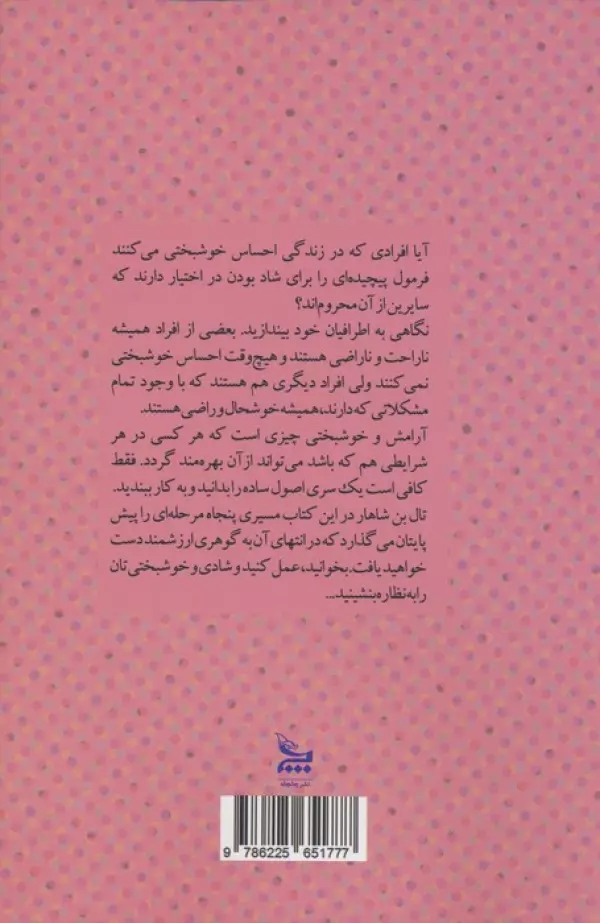 آیا افرادی که در زندگی احساس خوشبختی می‌کنند
فرمول پیچیده‌ای را برای شاد بودن در اختیار دارند که
سایرین از آن محروم‌اند؟
نگاهی به اطرافیان خود بیندازید. بعضی از افراد همیشه
ناراحت و ناراضی هستند و هیچ‌وقت احساس خوشبختی
نمی‌کنند ولی افراد دیگری هم هستند که با وجود تمام
مشکلاتی که دارند، همیشه خوشحال و راضی هستند.
آرامش و خوشبختی چیزی است که هر کسی در هر
شرایطی هم که باشد می‌تواند از آن بهره‌مند گردد. فقط
کافی است یک سری اصول ساده را بدانید و به کار ببندید.
تال بن شاهار در این کتاب مسیری پنجاه مرحله‌ای را پیش
پایتان می‌گذارد که در انتهای آن به گوهری ارزشمند دست
خواهید یافت. بخوانید، عمل کنید و شادی و خوشبختی‌تان
را به نظاره بنشینید...
9 786225 651777